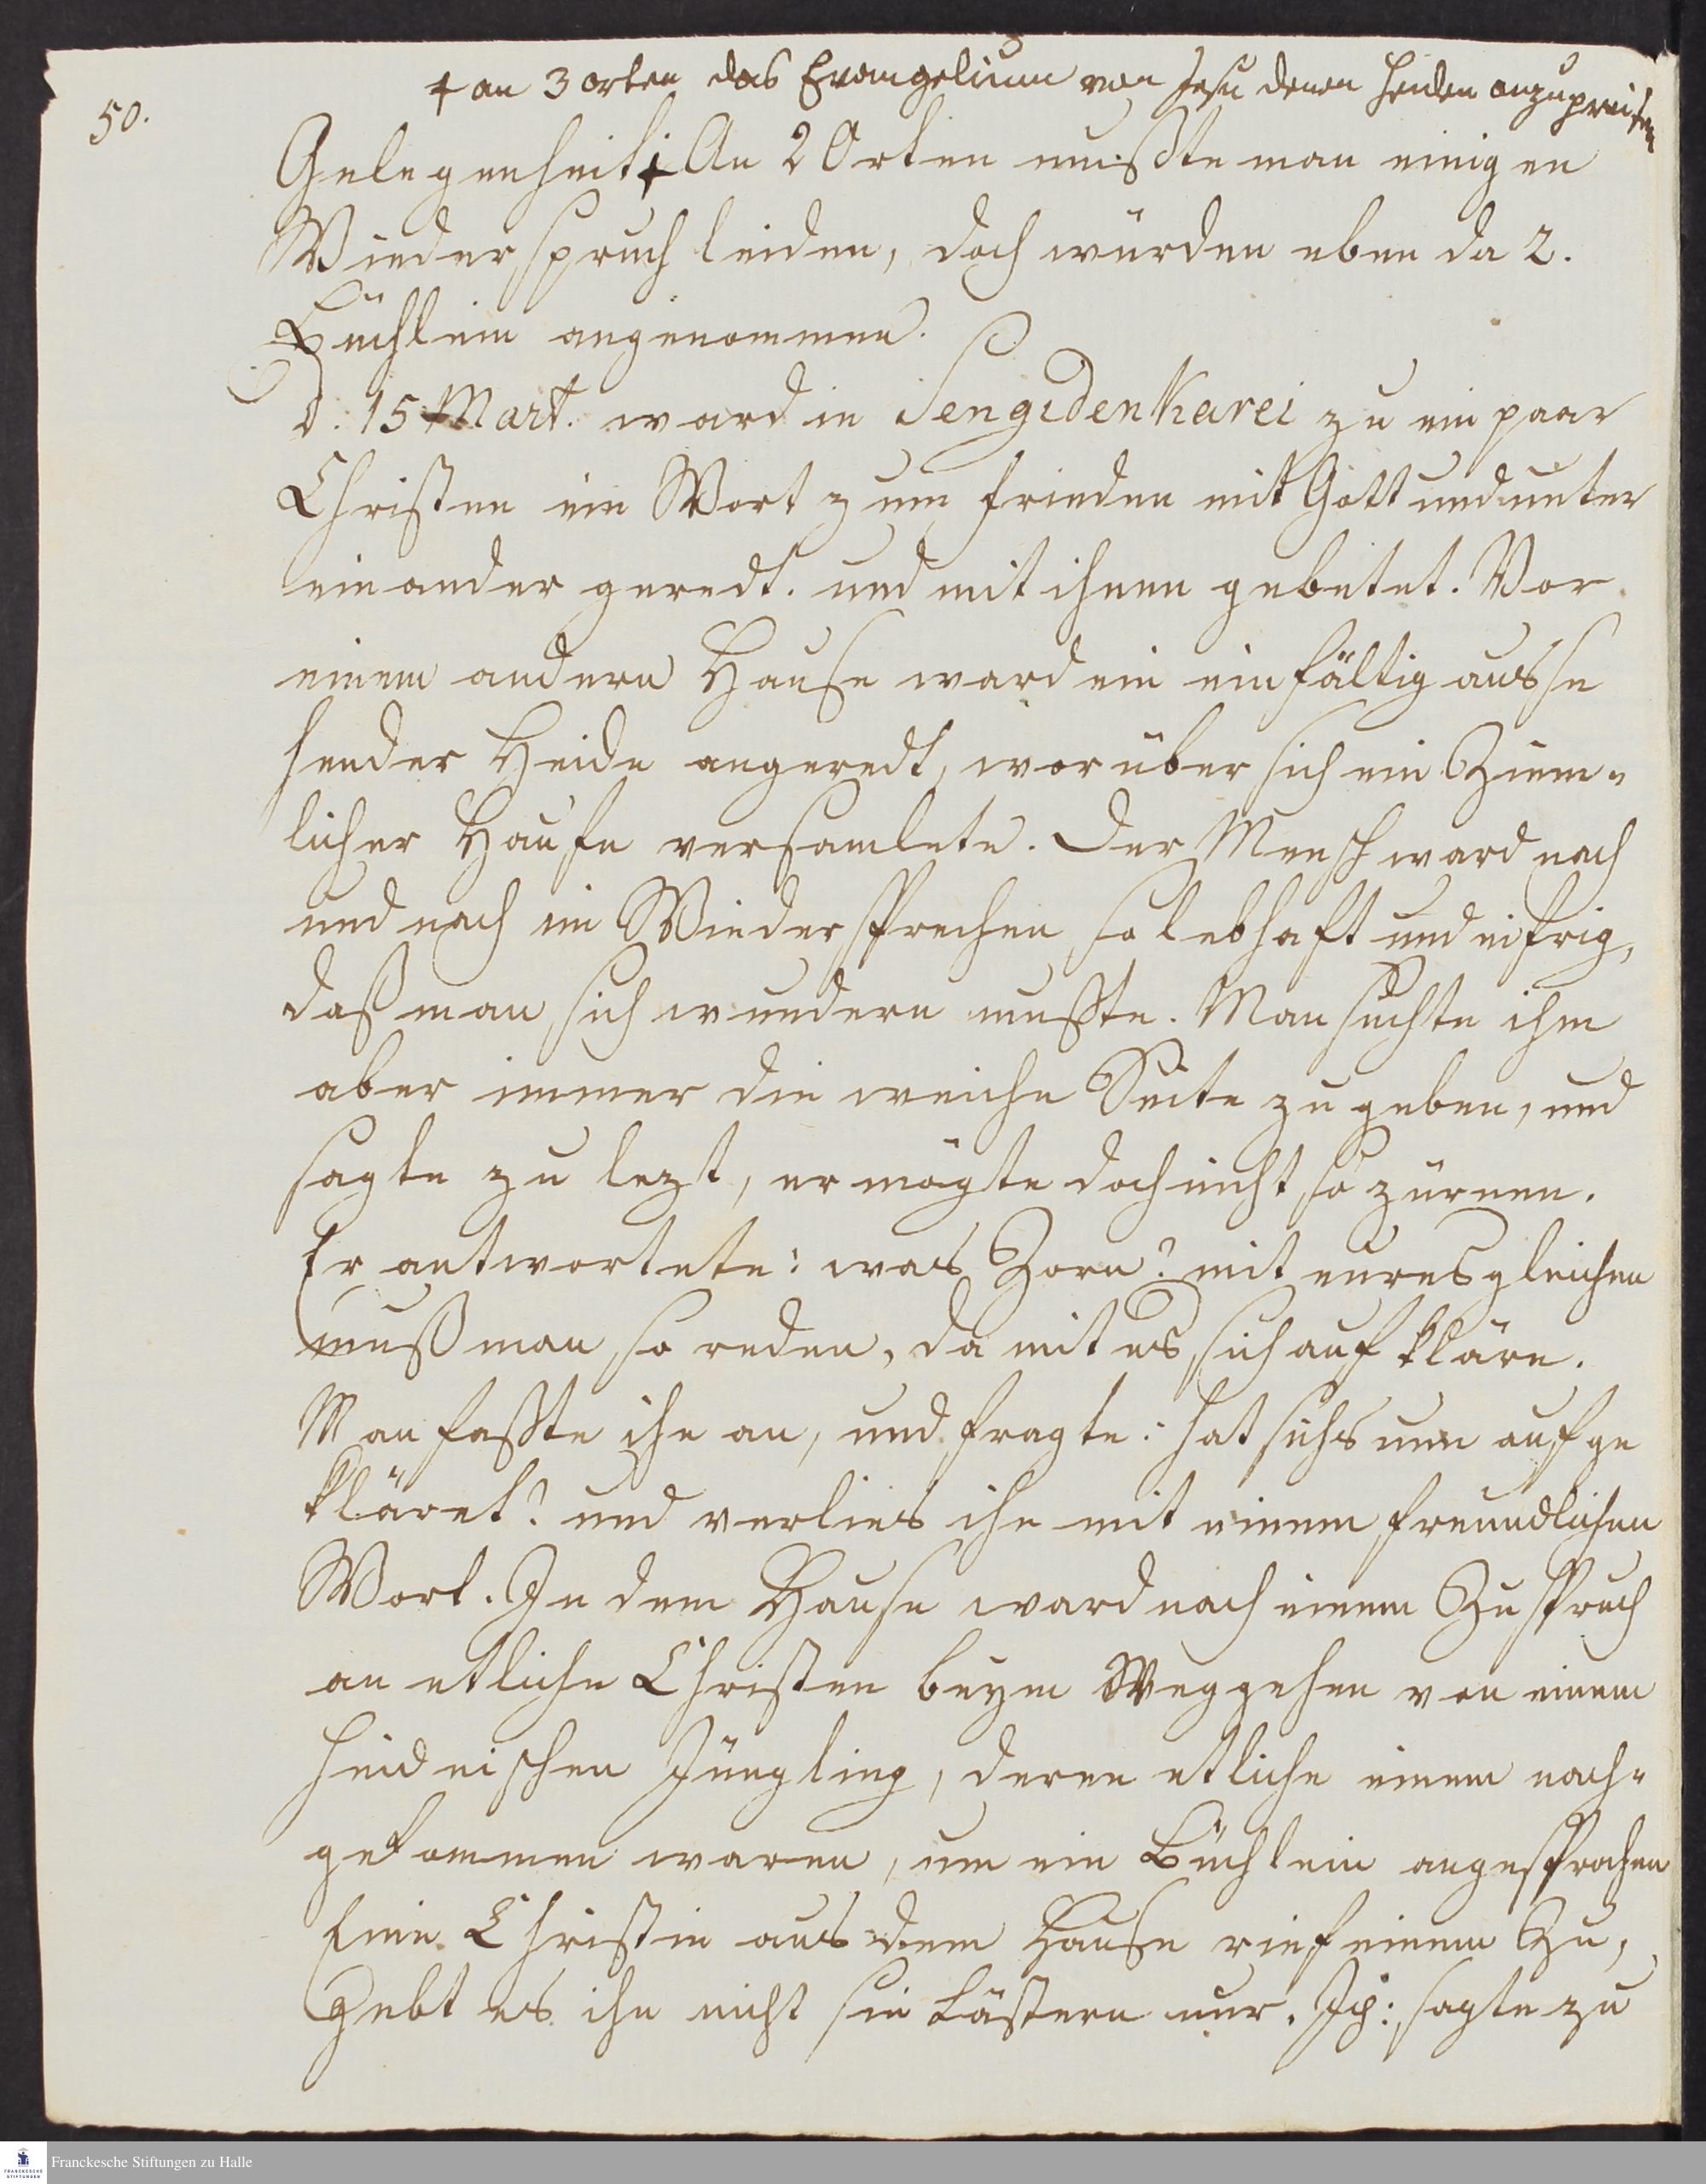 50.
+ an 3 orten das Evangelium von Jesu denen Heiden anzupreisen
Gelegenheit + An 2 Orten mußte man einigen
Wiederspruch leiden, doch wurden eben da 2.
Büchlein angenommen.
d. 15 Mart. ward in Sengidenkarei zu ein paar
Christen ein Wort zum frieden mit Gott und unter
einander geredt. und mit ihnen gebetet. Vor
einem andern Hause ward ein einfältig ausse
hender Heide angeredt, worüber sich ein Ziem-
licher Haufe versamlete. Der Mensch ward nach
und nach im Wiedersprechen so lebhaft und eifrig,
daß man sich wundern mußte. Man suchte ihm
aber immer die weiche Seite zu geben, und
sagte zu lezt, er mögte doch nicht so zürnen.
Er antwortete: was Zorn? mit euresgleichen
muß man so reden, da mit es sich auf kläre.
Man faßte ihn an, und fragte: hat sichs nun aufge
kläret? und verlies ihn mit einem freundlichen
Wort. In dem Hause ward nach einem Zuspruch
an etliche Christen beym Weggehen von einem
heidnischen Jüngling, deren etliche einem nach-
gekommen waren, um ein Büchlein angesprochen
Eine Christin aus dem Hause rief einem Zu,
Gebt es ihn nicht sie lästern nur. Ich: sagte zu
FRANCKESCHE STIFTUNGEN
Franckesche Stiftungen zu Halle